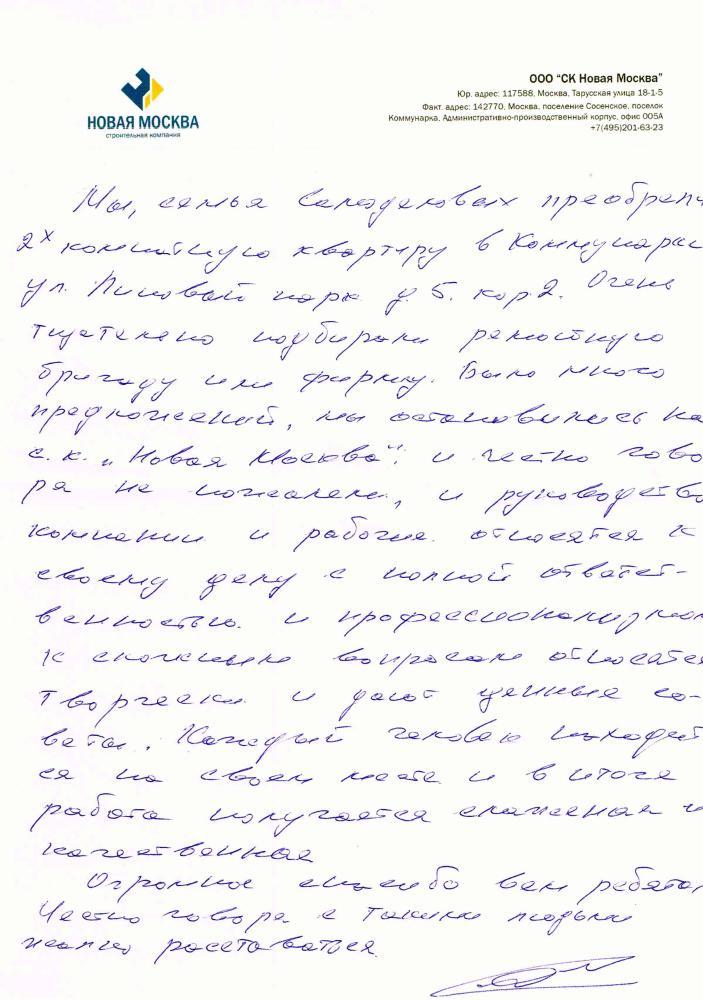 НОВАЯ МОСКВА
строительная компания
ООО "СК Новая Москва"
Юр. адрес: 117588, Москва, Тарусская улица 18-1-5
Факт. адрес: 142770, Москва, поселение Сосенское, поселок
Коммунарка, Административно-производственный корпус, офис 005А
+7(495)201-63-23
Мы, семья преобрели
2х комнатную квартиру в Коммунарке
ул. Липовый парк д. 5. кор 2. Очень
тщательно подбирали ремонтную
бригаду или фирму. Было много
предложений, мы остановились на
с.к. „Новая Москва". и честно гово
ря не пожалели, и руководство
компании и рабочие. относятся к
своему делу с полной ответст-
венностью. и профессионализмом
К сложным вопросам относятся
творчески и дают ценные со-
веты. Каждый человек находит
ся на своем месте и в итоге
работа получается слаженная и
качественная
Огромное спасибо вам ребята,
Честно говоря с такими людьми
жалко расставаться.